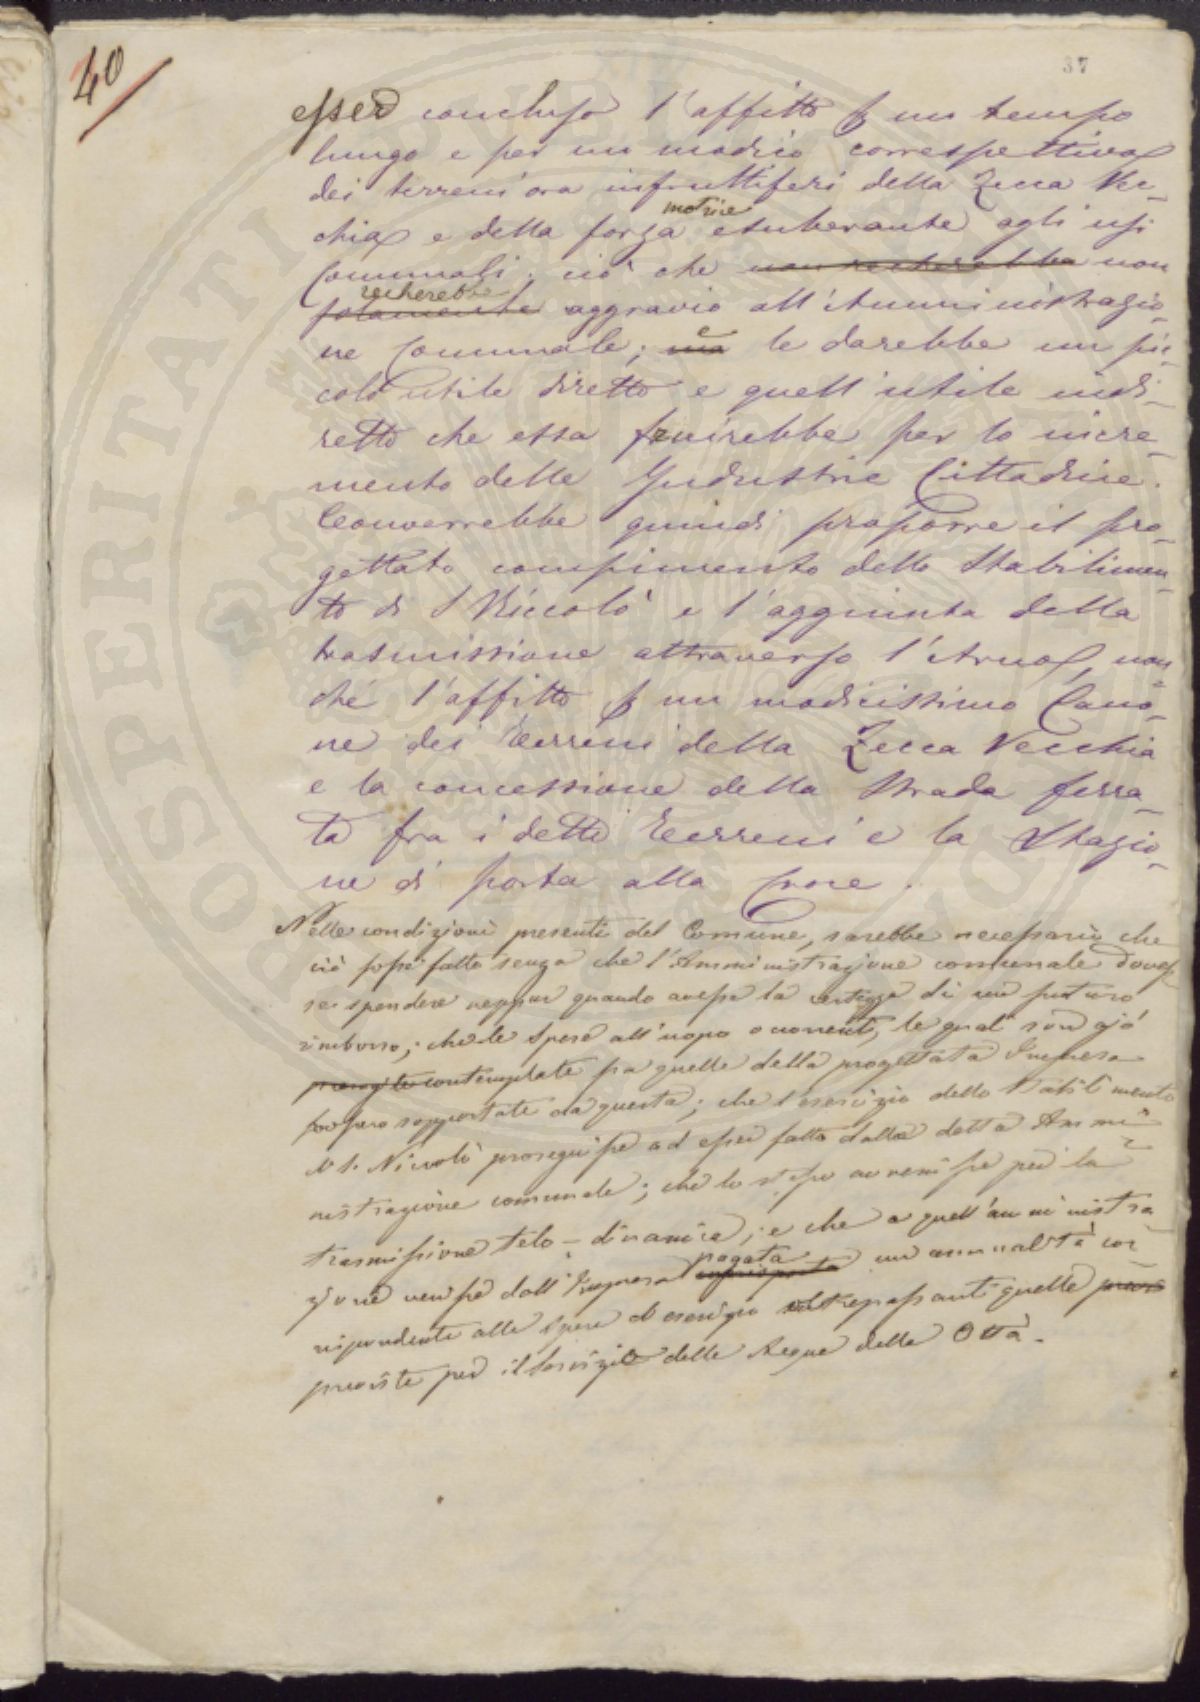 40
37
esser conchiuso l'affitto p un tempo
lungo e per un modico correspettivo
dei terreni ora infruttiferi della Zecca Vec-
chia e della forza motrice esuberante agli usi
Comunali; ciò che non recherebbe non
recherebbe
solamente aggravio all'Amministrazio-
ne Comunale; ma e le darebbe un pic-
colo utile diretto e quell'utile indi-
retto che essa fruirebbe per lo incre-
mento delle Industrie Cittadine.
Converrebbe quindi proporre il pro-
gettato compimento dello Stabilimen-
to di S Niccolò e l'aggiunta della
trasmissione attraverso l'Arno, non
ché l'affitto p un modicissimo Cano-
ne dei Terreni della Zecca Vecchia
e la concessione della Strada ferra-
ta fra i detti Terreni e la Stazio-
ne di porta alla Croce.
Nelle condizioni presenti del Comune, sarebbe necessario che
ciò fosse fatto senza che l'Amministrazione comunale doves-
se spendere neppur quando avesse la certezza di un futuro
rimborso; che le spese all'uopo occorrenti, le quali son già
contemplate fra quelle della progettata Impresa
fossero sopportate da questa; che l'esercizio dello Stabilimento
di S. Niccolò proseguisse ad esser fatto dalla detta Ammi-
nistrazione comunale; che lo stesso avvenisse per la
trasmissione telo-dinamica; e che a quell'amministra
zione venisse dall'Impresa pagata una annualità cor-
rispondente alle spese di esercizio oltrepassanti quelle
previste per il servizio delle Acque della Città.